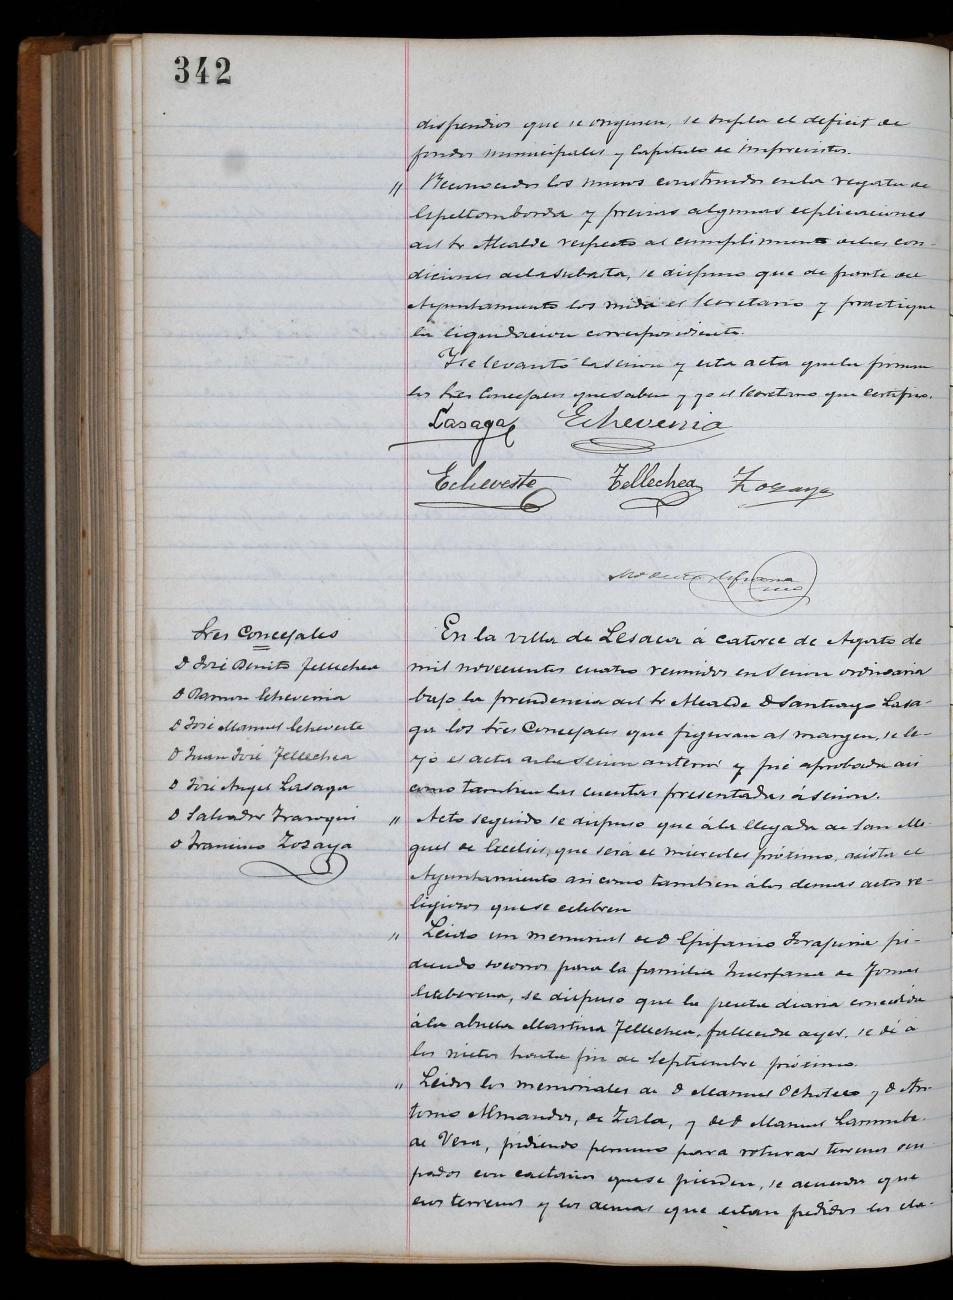 342
dispendios que se originen, se supla el deficit de
fondos municipales y Capitulo de Imprevistos.
" Reconocidos los muros construidos en la regata de
Espeltomborda y previas algunas esplicaciones
del Sr Alcalde respecto al cumplimiento de las con-
diciones de la subasta, se dispuso que de parte del
Ayuntamiento los mida el Secretario y practique
la liquidacion correspondiente.
Y se levantó la sesion y esta acta que la firman
los Sres Concejales que saben y yo el Secretario que certifico.
Lasaga Echeverria
Echeveste Tellechea Zozaya
Sres Concejales
D José Benito Tellechea
D Ramon Echeverria
D José Manuel Echeveste
D Juan José Tellechea
D José Angel Lasaga
D Salvador Irazoqui
D Francisco Zozaya
En la villa de Lesaca á catorce de Agosto de
mil novecientos cuatro reunidos en sesion ordinaria
bajo la presidencia del Sr Alcalde D Santiago Lasa-
ga los Sres Concejales que figuran al margen, se le-
yó el acta de la sesion anterior y fué aprobada asi
como tambien las cuentas presentadas á sesion.
" Acto seguido se dispuso que á la llegada de San Mi-
guel de Excelsis, que será el miercoles próximo, asista el
Ayuntamiento asi como tambien á los demas actos re-
ligiosos que se celebren
" Leido un memorial de D Epifanio pi-
diendo socorros para la familia huerfana de Tomas
, se dispuso que la peseta diaria concedida
á la abuela Martina Tellechea, fallecida ayer, se dé á
los nietos hasta fin de Septiembre próximo.
" Leidos los memoriales de D Manuel Ochoteco y D An-
tonio Almandoz, de Zala, y de D Manuel Larrumbe
de Vera, pidiendo permiso para roturar terrenos ocu-
pados con castaños que se pierden, se acuerda que
esos terrenos y los demas que estan pedidos los cla-